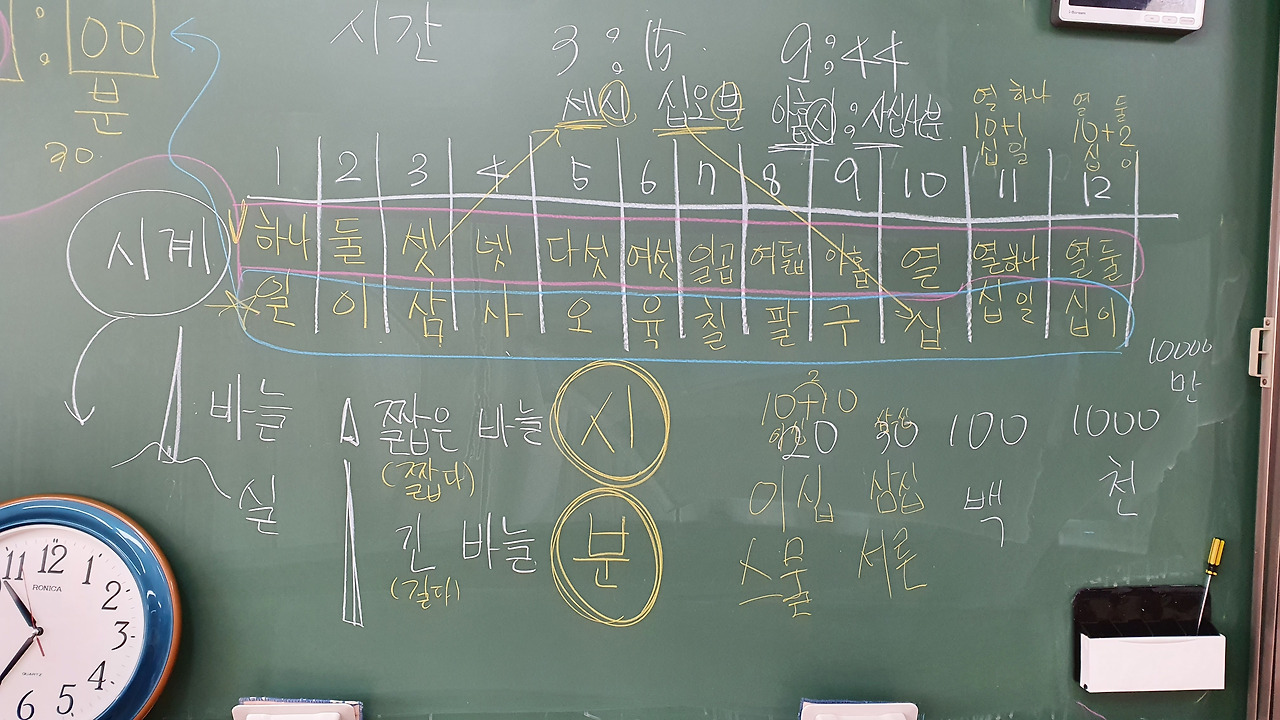 : 00
분
30
시간
3:15
9:44
세시 십오분
아홉시 : 사십사분
열 하나
10+1
십 일
열 둘
10+2
십 이
1 2 3 4 5 6 7 8 9 10 11 12
하나 둘 셋 넷 다섯 여섯 일곱 여덟 아홉 열 열하나 열둘
일 이 삼 사 오 육 칠 팔 구 십 십일 십이
시계
바늘
실
짧은 바늘 시
(짧다)
긴 바늘 분
(길다)
2
10+10
20 30 100 1000
10000
만
이십 삼십 백 천
스물 서른
11 12 1
2
3
4
5
6
RONICA
QUARTZ